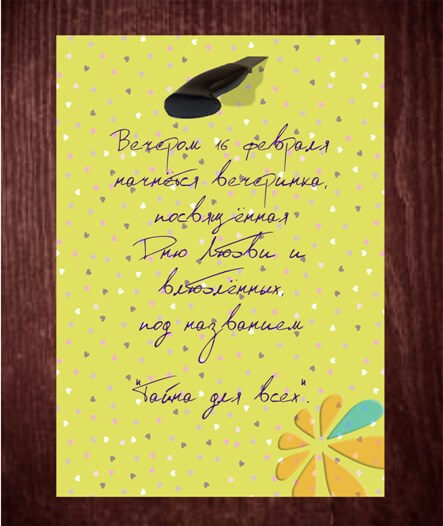 Вечером 16 февраля
начнётся вечеринка,
посвящённая
Дню Любви и
влюблённых,
под названием
"Тайна для всех".